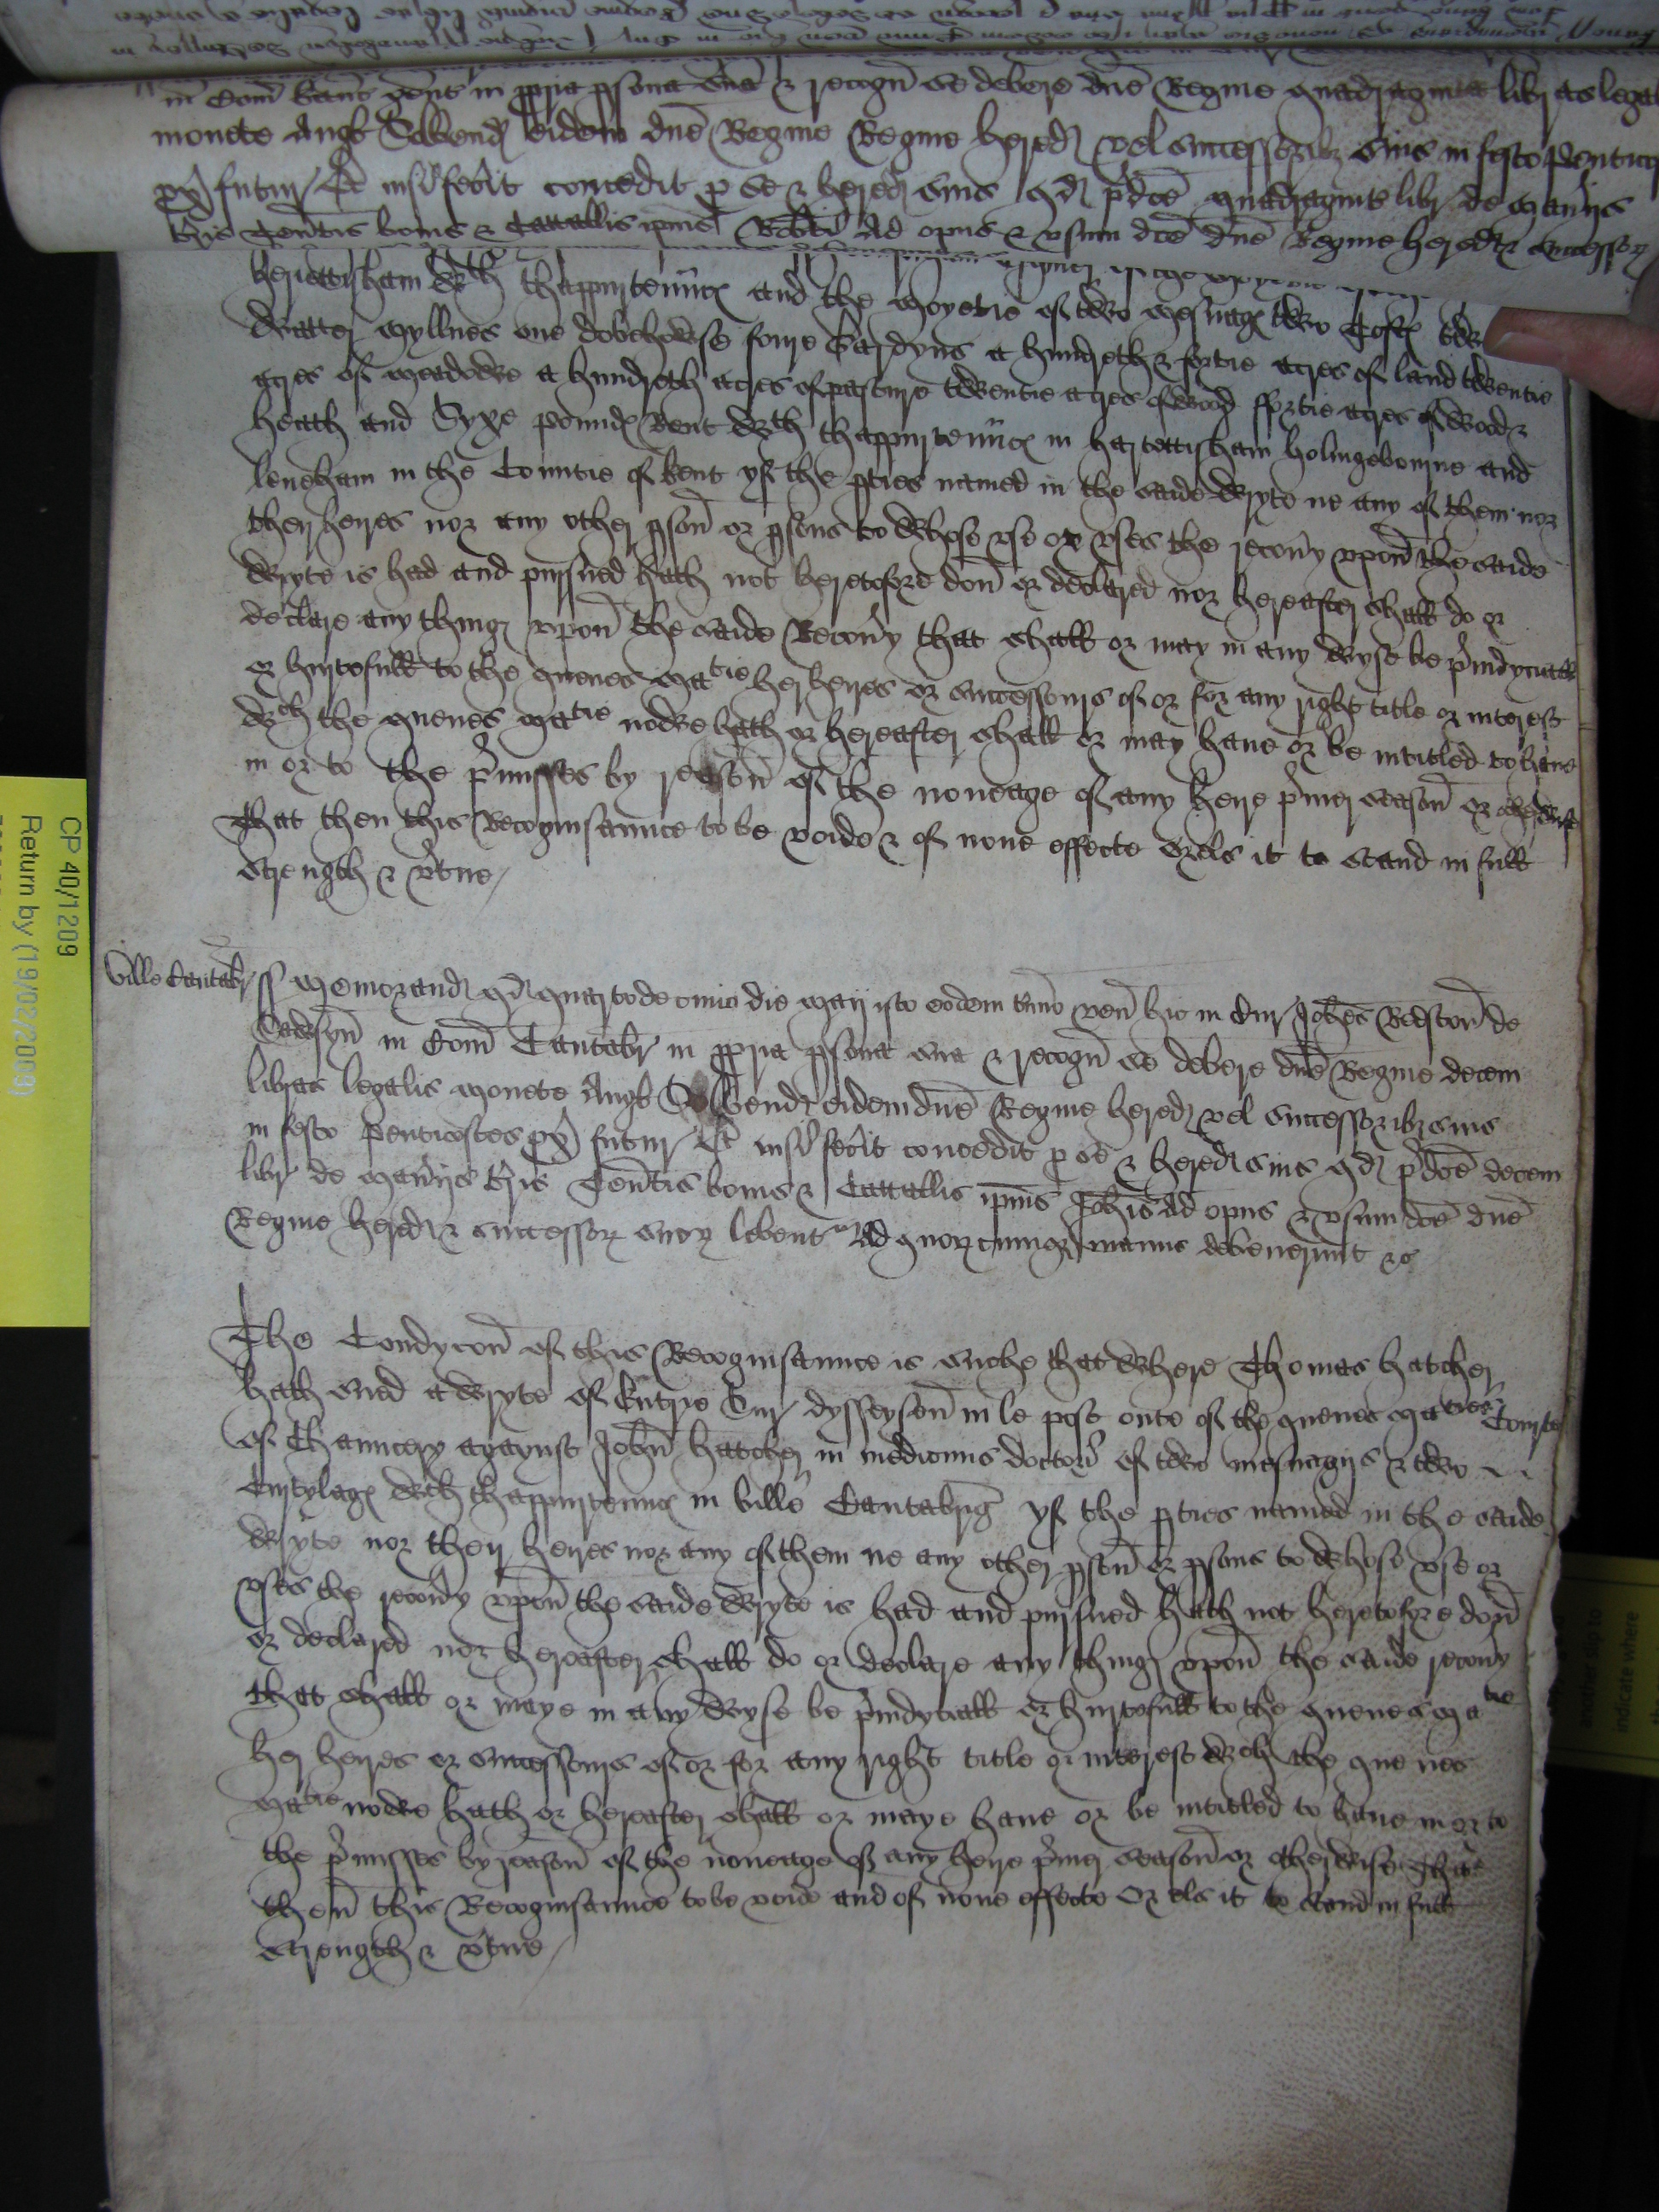 in Com̃ kanc̃ gent in ppria psona sua & recogñ se debere dñe Regine quadraginta libras legal
monete Angl Solvend eidem dñe Regine Regine hered vel successoribz suis in festo Pentecos
px futur Et nisi fecit concedit p se & hered suis qd pdce quadragint libr de mañijs
tris teñtis bonis & Catallis ipius Robti Ad opus & usum dce dñe Regine hered & successor
herietisham wth thappurteñnc and the moyetie of two mesuag two Toft
water myllnes one dovehowse foure Gardyns a hundreth & fortie acres of land twentie
acres of meadowe a hundreth acres of pasture twentie acres of wood fortie acres of wood &
heath and Syxe pound Rent wth thappurteñnc in harietisham holingeborne and
leneham in the Countie of kent yf the pties named in the saide wryte ne any of them nor
their heyres nor any other pson or psons to whose use or uses the recovy upon the saide
wryte is had and pursued hath not heretofore don or declared nor hereafter shall do or
declare any thing upon the saide Recovy that shall or may in any wyse be piudyciall
or hurtefull to the quenes matie her heyres or successours of or for any right title or interest
wch the quenes matie nowe hath or hereafter shall or may have or be intitled to have
in or to the pmisses by reason of the noneage of any heire pmer season or otherwise
That then this Recognisaunce to be voide & of none effecte Orels it to stand in full
strength & vtue

Ville Cantabr ss Memorand qd quartodecimo die Maii isto eodem tmino veñ hic in Cur Johes Redston de
in Com̃ Cantabr in ppria psona sua & recogñ se debere dñe Regine decem
libras legalis monete Angl Solvend eidem dñe Regine hered vel successoribz suis
in festo Pentecostes px futur Et nisi fecit concedit p se & hered suis qd pdce decem
libr de mañijs tris teñtis bonis & Catallis ipius Johis Ad opus & usum dce dñe
Regine hered & successor suor levent Ad quorcumqz manus devenerunt &c

The Condycon of this Recognisaunce is suche that where Thomas hatcher
hath sued a wryte of Entrie Sur dysseyson in le post oute of the quenes maties Courte
of Chauncery agaynst John hatcher in medicinis doctor of two mesuagis & two
Curtylag wth thappurtennc in Ville Cantabrig yf the pties named in the saide
wryte nor their heyres nor any of them ne any other pson or psons to whose use or
uses the recovy upon the saide wryte is had and pursued hath not heretofore don
or declared nor hereafter shall do or declare any thing upon the saide recovy
that shall or maye in any wyse be piudyciall or hurtefull to the quenes matie
her heyres or successours of or for any right title or interest wch the quenes
matie nowe hath or hereafter shall or maye have or be intitled to have in or to
the pmisses by reason of the noneage of any heire pmer season or otherwise That
then this Recognisaunce to be voide and of none effecte Or els it to stand in full
strength & vtue

CP 40/1209
Return by (19/02/2009)
another slip to
indicate where